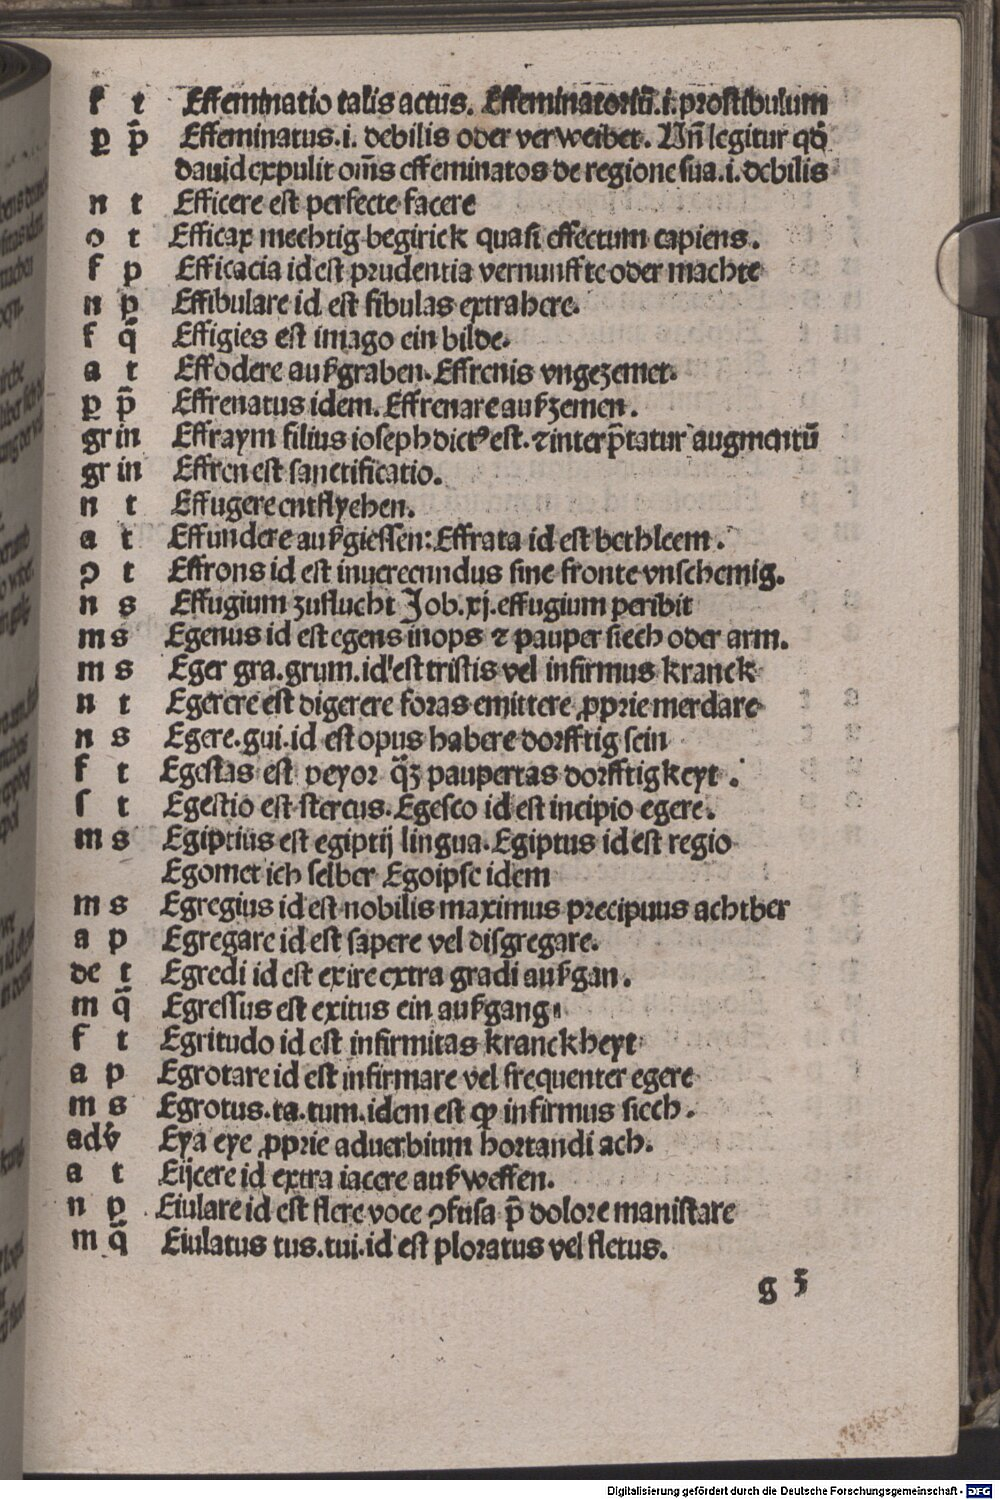 f t Effeminatio talis actus. Effeminatoriū.i.prostibulum
ꝑ p̄ Effeminatus.i. debilis oder verweibet. Vn̄ legitur qđ
dauid expulit om̄s effeminatos de regione sua.i.debilis
n t Efficere est perfecte facere
o t Efficax mechtig begirick quasi effectum capiens.
f p Efficacia id est prudentia vernunffte oder machte
n p Effibulare id est fibulas extrahere.
f q̄ Effigies est imago ein bilde.
a t Effodere außgraben. Effrenis vngezemet.
ꝑ p̄ Effrenatus idem. Effrenare außzemen.
gr in Effraym filius ioseph dictꝰ est. ⁊ interp̄tatur augmentū
gr in Effren est sanctificatio.
n t Effugere entflyehen.
a t Effundere außgiessen: Effrata id est bethleem.
ↄ t Effrons id est inuerecundus sine fronte vnschemig.
n s Effugium zuflucht Job.xj.effugium peribit
m s Egenus id est egens inops ⁊ pauper siech oder arm.
m s Eger gra.grum.id est tristis vel infirmus kranck
n t Egerere est digerere foras emittere ꝓprie merdare
n s Egere.gui.id est opus habere dorfftig sein
f t Egestas est peyor q̄ꝫ paupertas dorfftigkeyt.
f t Egestio est stercus. Egesco id est incipio egere.
m s Egiptius est egiptij lingua. Egiptus id est regio
Egomet ich selber Egoipse idem
m s Egregius id est nobilis maximus precipuus achtber
a p Egregare id est sapere vel disgregare.
de t Egredi id est exire extra gradi außgan.
m q̄ Egressus est exitus ein außgang
f t Egritudo id est infirmitas kranckheyt
a p Egrotare id est infirmare vel frequenter egere
m s Egrotus.ta.tum.idem est ꝙ infirmus siech.
adv̄ Eya eye ꝓprie aduerbium hortandi ach.
a t Eijcere id extra iacere außweffen.
n p Eiulare id est flere voce ↄfusa p̄ dolore manistare
m q̄ Eiulatus tus.tui.id est ploratus vel fletus.
g 3
Digitalisierung gefördert durch die Deutsche Forschungsgemeinschaft - DFG